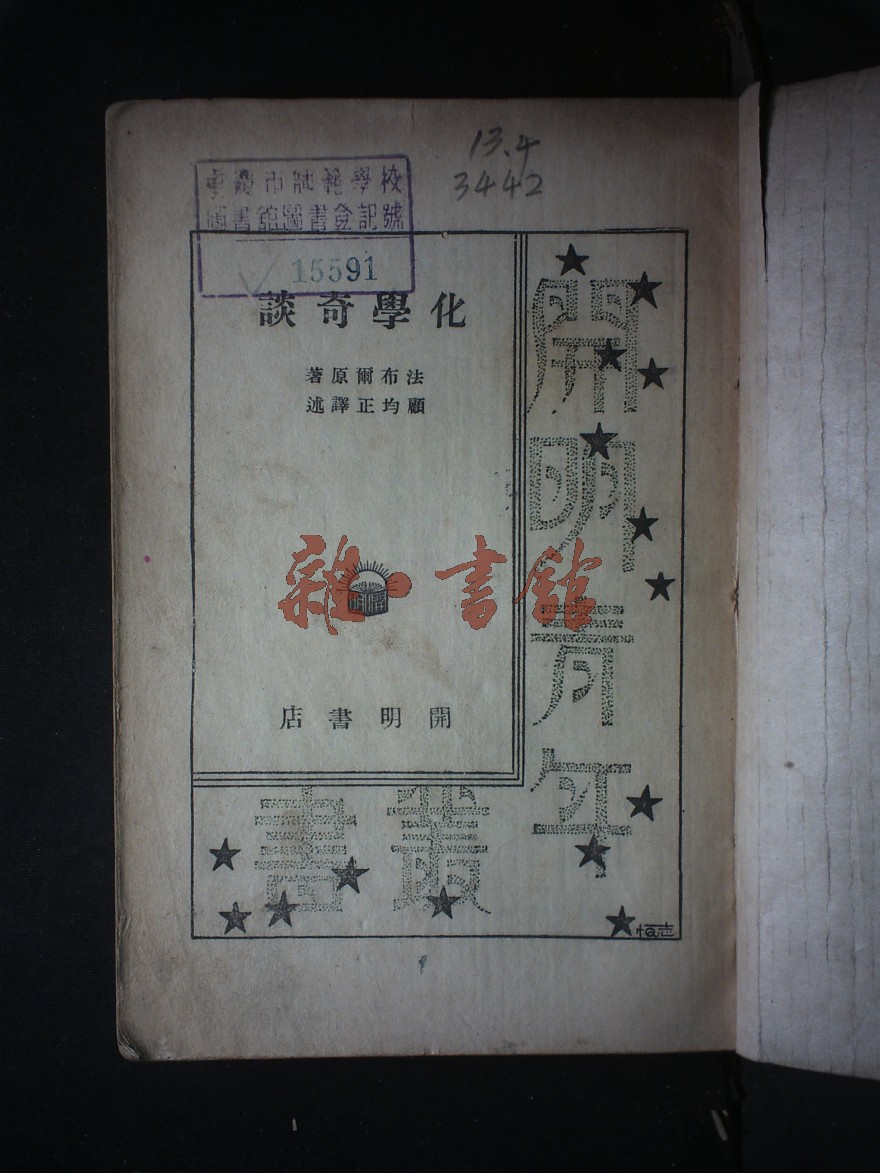 13.4
3442
重慶市師範學校
圖書館圖書登記號
15591
化學奇談
法布爾原著
顧均正譯述
開明
開明書店
開明青年
叢書
恒志
雜·書館